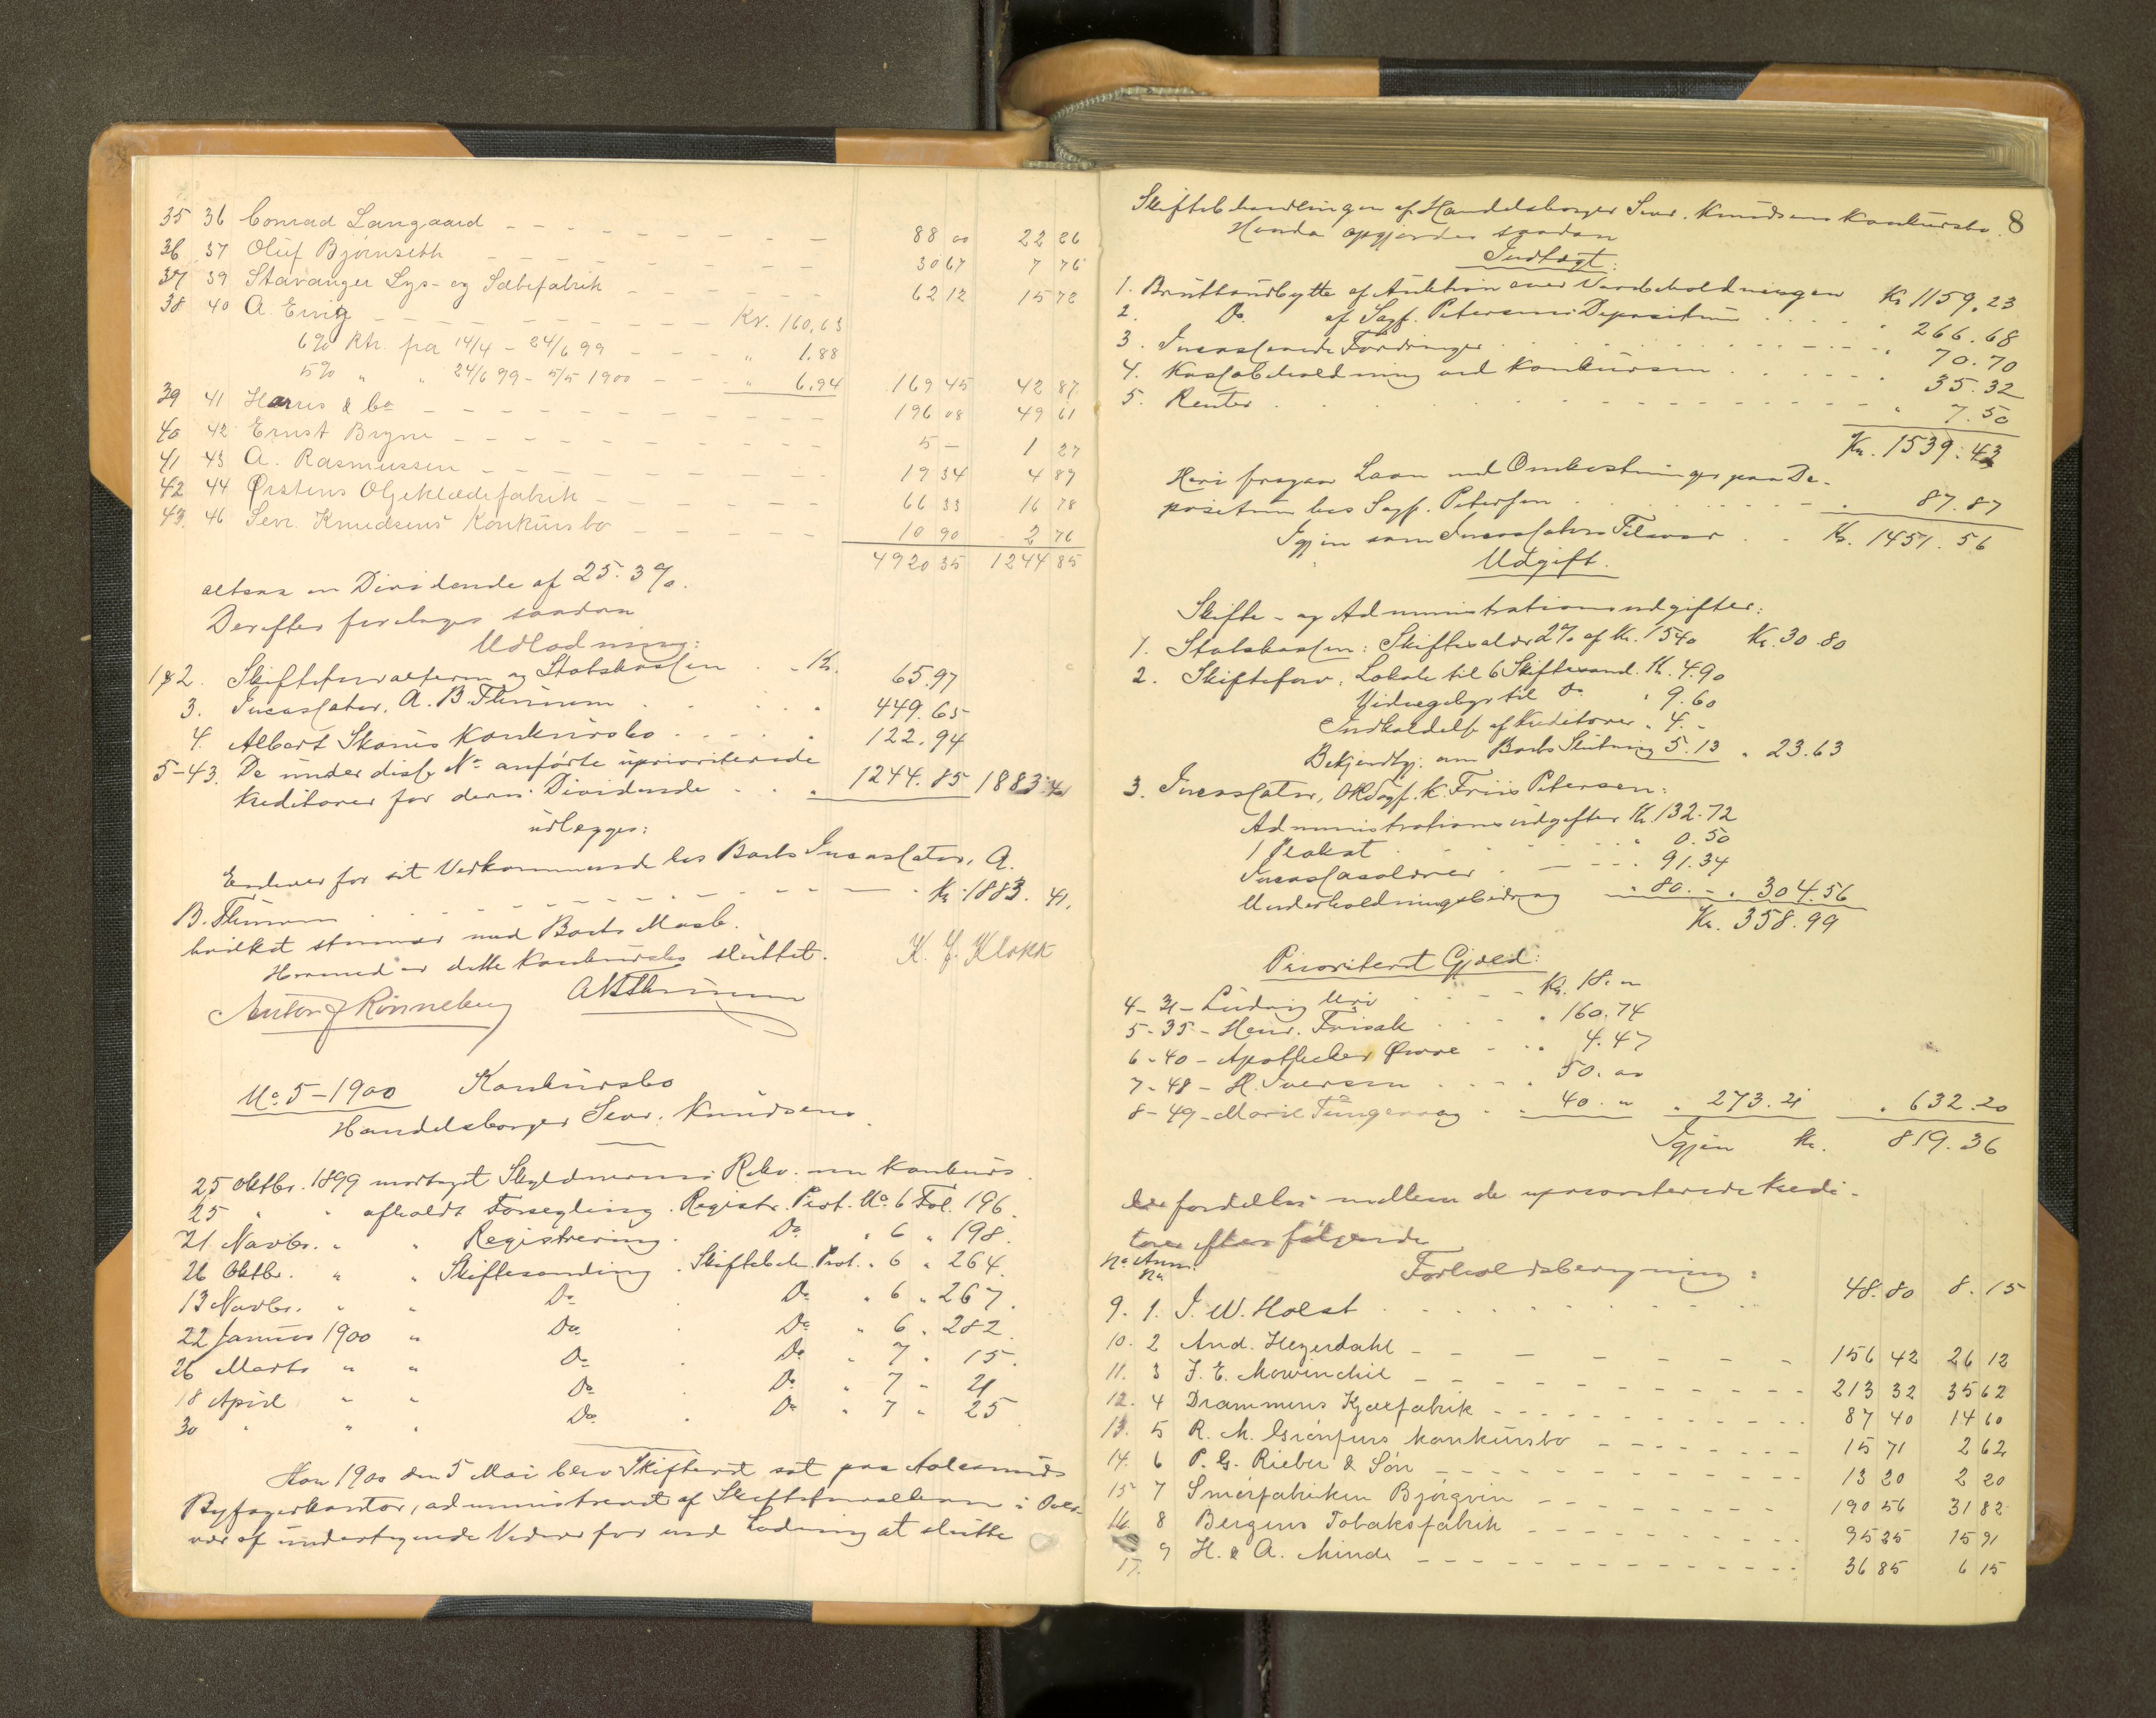 35 36 Conrad Langaard 88 00 22 26
36 37 Oluf Bjørnseth 30 67 7 76
37 39 Stavanger Lys- og Sæbefabrik 62 12 15 72
38 40 A. Enig Kr. 160,63
6% Rtr. fra 14/4 - 24/6 99 " 1.88
5% " " 24/6 99 - 5/5 1900 " 6,94 169 45 42 87
39 41 Harris & Co 196 08 49 61
40 42 Ernst Bryne 5 — 1 27
41 43 A. Rasmussen 19 34 4 89
42 44 Ørstens Oljeklædefabrik 66 33 16 78
43. 46 Sevr. Knudsens Konkursbo 10 90 2 76
4920 35 1244 85
altsaa en Dividende af 25.3%.
Derefter foretages saadan
Udlodning:
1 & 2. Skifteforvalteren og Statskassen Kr. 65.97
3. Incassator, A. B. Thinum 449.65
4. Albert Skaars Konkursbo 122.94
5-43. De under disse No anførte uprioriterede
Kreditorer for deres Dividende 1244.85 1883.41
udlægges:
Enhver for sit Vedkommende hos Boets Incassator, A.
B. Thinum Kr. 1883.41.
hvilket stemmer med Boets Masse.
Hermed er dette Konkursbo sluttet.
K. J. Klokk
Anton J Rønneberg
No 5 - 1900 Konkursbo
Handelsborger Sevr. Knudsens
25 Oktbr. 1899 modtaget Skyldnerens Rekv. om Konkurs.
25 " " afholdt Forsegling. Registr. Prot. No. 6 Fol. 196.
21 Novbr. " " Registrering. Do " 6 " 198.
26 Oktbr. " " Skiftesamling. Skiftebeh. Prot. " 6 " 264.
13 Novbr. " " Do. Do " 6 " 267.
22 Januar 1900 " Do. Do " 6 " 282.
26 Marts " " Do. Do " 7 " 15.
18 April " " Do. Do " 7 " 21
30 " " " Do. Do " 7 " 25.
Aar 1900 den 5 Mai blev Skifteret sat paa Aalesunds
Byfogedkontor, administreret af Skifteforvalteren i Over-
vær af undertegnede Vidner for ved Lodning at slutte
8
Skiftebehandlingen af Handelsborger Sevr. Knudsens Konkursbo.
Herda opgjordes saadan
Indtægt:
1. Bruttoudbytte af Auktion over Varebeholdningen Kr 1159.23
2. Do. af Sagf. Petersens Depositum " 266.68
3. Incasserede Fordringer " 70.70
4. Kassabeholdning ved Konkursen " 35.32
5. Renter " 7.50
Kr. 1539.43
Heri fragaar Laan med Omkostninger paa De-
positum hos Sagf. Petersen " 87.87
Igjen som Incassators Tilsvar Kr. 1451.56
Udgift.
Skifte- og Administrationsudgifter:
1. Statskassen: Skiftesalær 2% af Kr. 1540 Kr. 30.80
2. Skifteforv. Lokale til 6 Skiftesaml. Kr. 4.90
Vidnegebyr til do " 9.60
Indkaldelse af Kreditorer " 4.-
Bekjendtgj. om Boets Slutning 5.13 " 23.63
3. Incassator, ORSagf. K. Friis Petersen:
Administrationsudgifter Kr. 132.72
1 Plakat " 0.50
Incassasalærer " 91.34
Underholdningsbidrag " 80.- " 304.56
Kr. 358.99
Prioriteret Gjæld:
4 - 31 - Ludvig Uri Kr. 18.00
5 - 35 - Henr. Frisak " 160.74
6 - 40 - Apotheker Øwre " 4.47
7 - 48 - H. Iversen " 50.00
8 - 49 - Marie Tungevaag " 40.00 " 273.21 " 632.20
Igjen Kr. 819.36
der fordeles mellem de uprioriterede Kredi-
torer efter følgende
No Anm. No. Forholdsberegning:
9. 1. J. W. Holst 48.80 8.15
10. 2 And. Heyerdahl 156 42 26 12
11. 3 J. E. Mowinckel 213 32 35 62
12. 4 Drammens Kjæxfabrik 87 40 14 60
13. 5 R. M. Grønfurs Konkursbo 15 71 2 62
14. 6 P. G. Rieber & Søn 13 20 2 20
15 7 Smørfabriken Bjørgvin 190 56 31 82
16 8 Bergens Tobaksfabrik 95 25 15 91
17. 9 H. & A. Minde 36 85 6 15